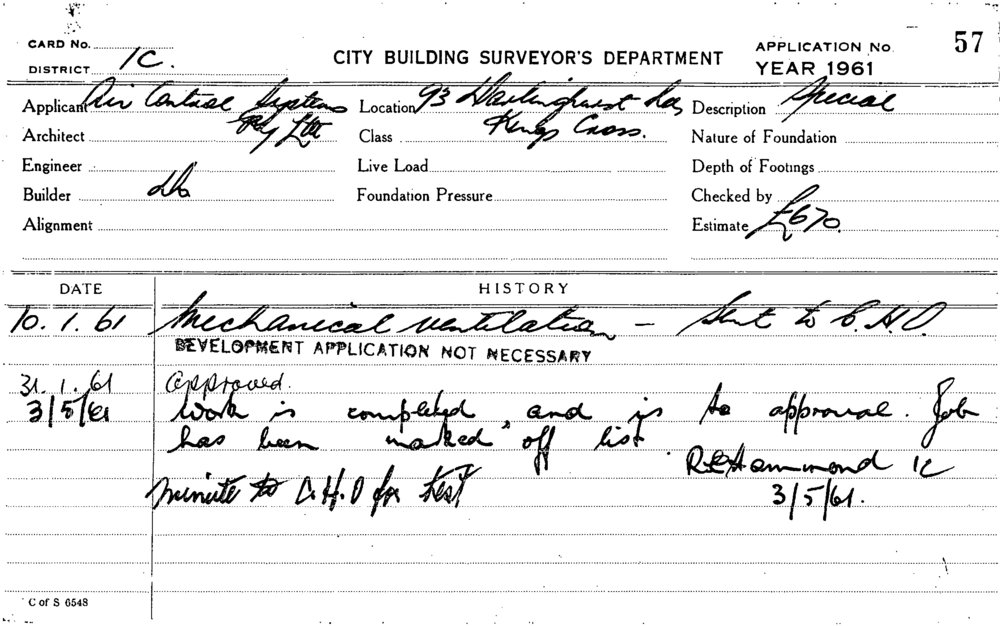 CARD No.
DISTRICT 1C.
CITY BUILDING SURVEYOR'S DEPARTMENT
APPLICATION No. 57
YEAR 1961
Applicant Air Control Systems Pty Ltd
Location 93 Darlinghurst Rd, Kings Cross.
Description Special
Architect
Class
Nature of Foundation
Engineer
Live Load
Depth of Footings
Builder Do
Foundation Pressure
Checked by
Alignment
Estimate £670.
DATE HISTORY
10.1.61 Mechanical ventilation - Sent to C.H.O.
DEVELOPMENT APPLICATION NOT NECESSARY
31.1.61 Approved.
3/5/61 Work is completed and is to approval. Job
has been "marked" off list
R E Hammond 1C
minute to C.H.O for test
3/5/61.
C of S 6548